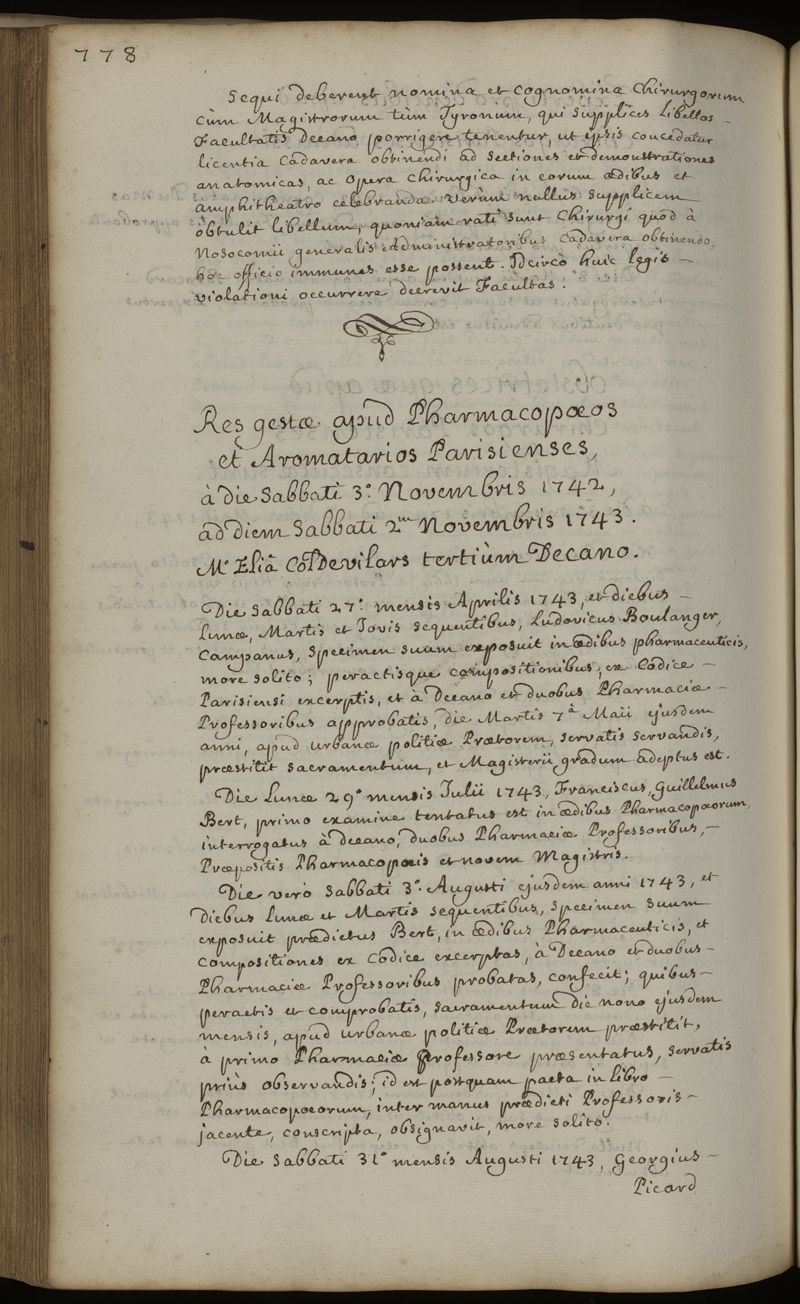 778
Sequi deberent nomina et cognomina Chirurgorum
cùm Magistrorum tùm Tyronium, qui supplices libellos
Facultatis Decano porrigere tenentur, ut ipsis concedatur
licentia cadavera obtinendi ad sectiones et demonstrationes
anatomicas, ac opera chirurgica in eorum ædibus et
amphitheatro celebranda. Verùm nullus supplicem
obtulit libellum, quoniam rati sunt Chirurgi quòd à
Nosocomii generalis administratoribus cadavera obtinendo
hoc officio immunes esse possent. Idcircò huic legis
violationi occurrere decrevit Facultas.
Res gestæ apud Pharmacopœos
et Aromatarios Parisienses,
à die Sabbati 3.ᵃ Novembris 1742,
ad diem Sabbati 2ᵃᵐ Novembris 1743.
M.º Eliâ Col Devilars tertiùm Decano.
Die Sabbati 27.ᵃ mensis Aprilis 1743, et diebus
Lunæ, Martis et Jovis sequentibus, Ludovicus Boulanger,
Campanus, specimen suum exposuit in ædibus pharmaceuticis,
more solito; peractisque compositionibus, ex Codice
Parisiensi excerptis, et à Decano et duobus Pharmaciæ
Professoribus approbatis, die Martis 7.ᵃ Maii ejusdem
anni, apud urbanæ politiæ Prætorem, servatis servandis,
præstitit sacramentum, et Magisterii gradum adeptus est.
Die Lunæ 29.ᵃ mensis Julii 1743, Franciscus, Guillelmus
Bert, primo examine tentatus est in ædibus Pharmacopœorum,
interrogatus à decano, duobus Pharmaciæ Professoribus,
Præpositis Pharmacopœis et novem Magistris.
Die verò Sabbati 3.ᵃ Augusti ejusdem anni 1743, et
diebus Lunæ et Martis sequentibus, specimen suum
exposuit prædictus Bert, in ædibus Pharmaceuticis, et
compositiones ex Codice excerptas, à Decano et duobus
Pharmaciæ Professoribus probatas, confecit; quibus
peractis et comprobatis, sacramentum die nono ejusdem
mensis, apud urbanæ politiæ Prætorem præstitit,
à primo Pharmaciæ Professore præsentatus, servatis
priùs observandis; id est postquam pacta in libro
Pharmacopœorum, inter manus prædicti Professoris
jacente, conscripta, obsignavit, more solito.
Die Sabbati 31.ᵃ mensis Augusti 1743, Georgius
Picard